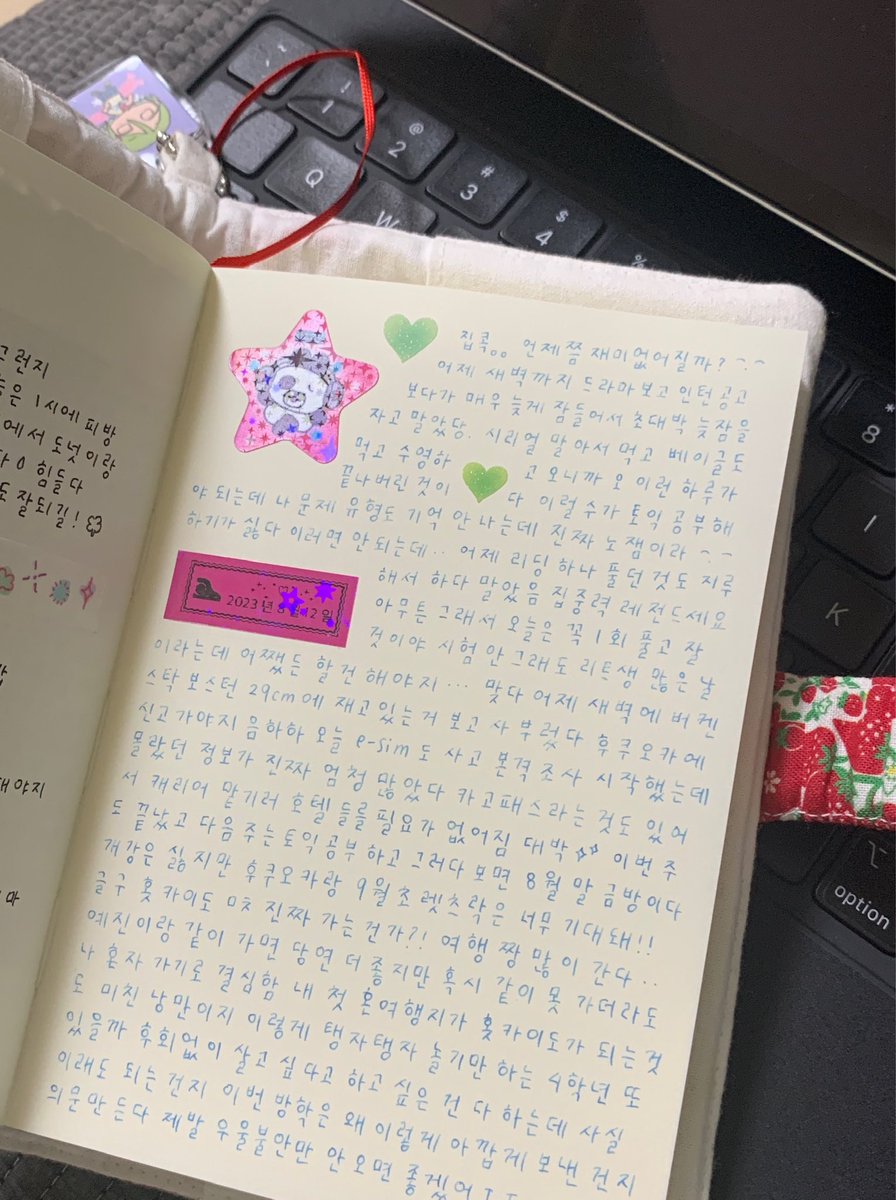 그런지
은 1시에 피방
에서 도넛이랑
다 ㅇ 힘들다
도 잘되길!
해야지
마
집콕。。 언제쯤 재미없어질까? ㅜㅜ
어제 새벽까지 드라마보고 인턴공고
보다가 매우 늦게 잠들어서 초대박 늦잠을
자고 말았당. 시리얼 말아서 먹고 베이글도
먹고 수영하고 오니까 오 이런 하루가
끝나버린 것이다 이럴 수가 토익 공부해
야 되는데 나 문제 유형도 기억 안나는데 진짜 노잼이라 ㅜㅜ
하기가 싫다 이러면 안되는데.. 어제 리딩 하나 풀던 것도 지루
해서 하다 말았음 집중력 레전드세요
2023년 8월 12일
아무튼 그래서 오늘은 꼭 1회 풀고 잘
것이야 시험 안그래도 리트생 많은 날
이라는데 어쨌든 할건 해야지... 맞다 어제 새벽에 버켄
스탁 보스턴 29cm에 재고있는거 보고 사부렀다 후쿠오카에
신고가야지 음하하 오늘 e-sim도 사고 본격 조사 시작했는데
몰랐던 정보가 진짜 엄청 많았다 카고패스라는 것도 있어
서 캐리어 맡기러 호텔 들를 필요가 없어짐 대박 이번 주
도 끝났고 다음주는토익공부하고 그러다 보면 8월 말 금방이다
개강은 싫지만 후쿠오카랑 9월초 렛츠락은 너무 기대돼!!
글구 홋카이도 진짜 가는건가?! 여행 짱 많이 간다..
예진이랑 같이 가면 당연 더 좋지만 혹시 같이 못 가더라도
나 혼자 가기로 결심함 내 첫 혼여행지가 홋카이도가 되는것
도 미친 낭만이지 이렇게 탱자탱자 놀기만 하는 4학년 또
있을까 후회없이 살고 싶다고 하고 싶은 건 다 하는데 사실
이래도 되는 건지 이번 방학은 왜 이렇게 아깝게 보낸 건지
의문만 든다 제발 우울불안만 안 오면 좋겠어ㅜㅜ
~
!
1
@
2
#
3
$
4
%
Q
W
8
I
K
option